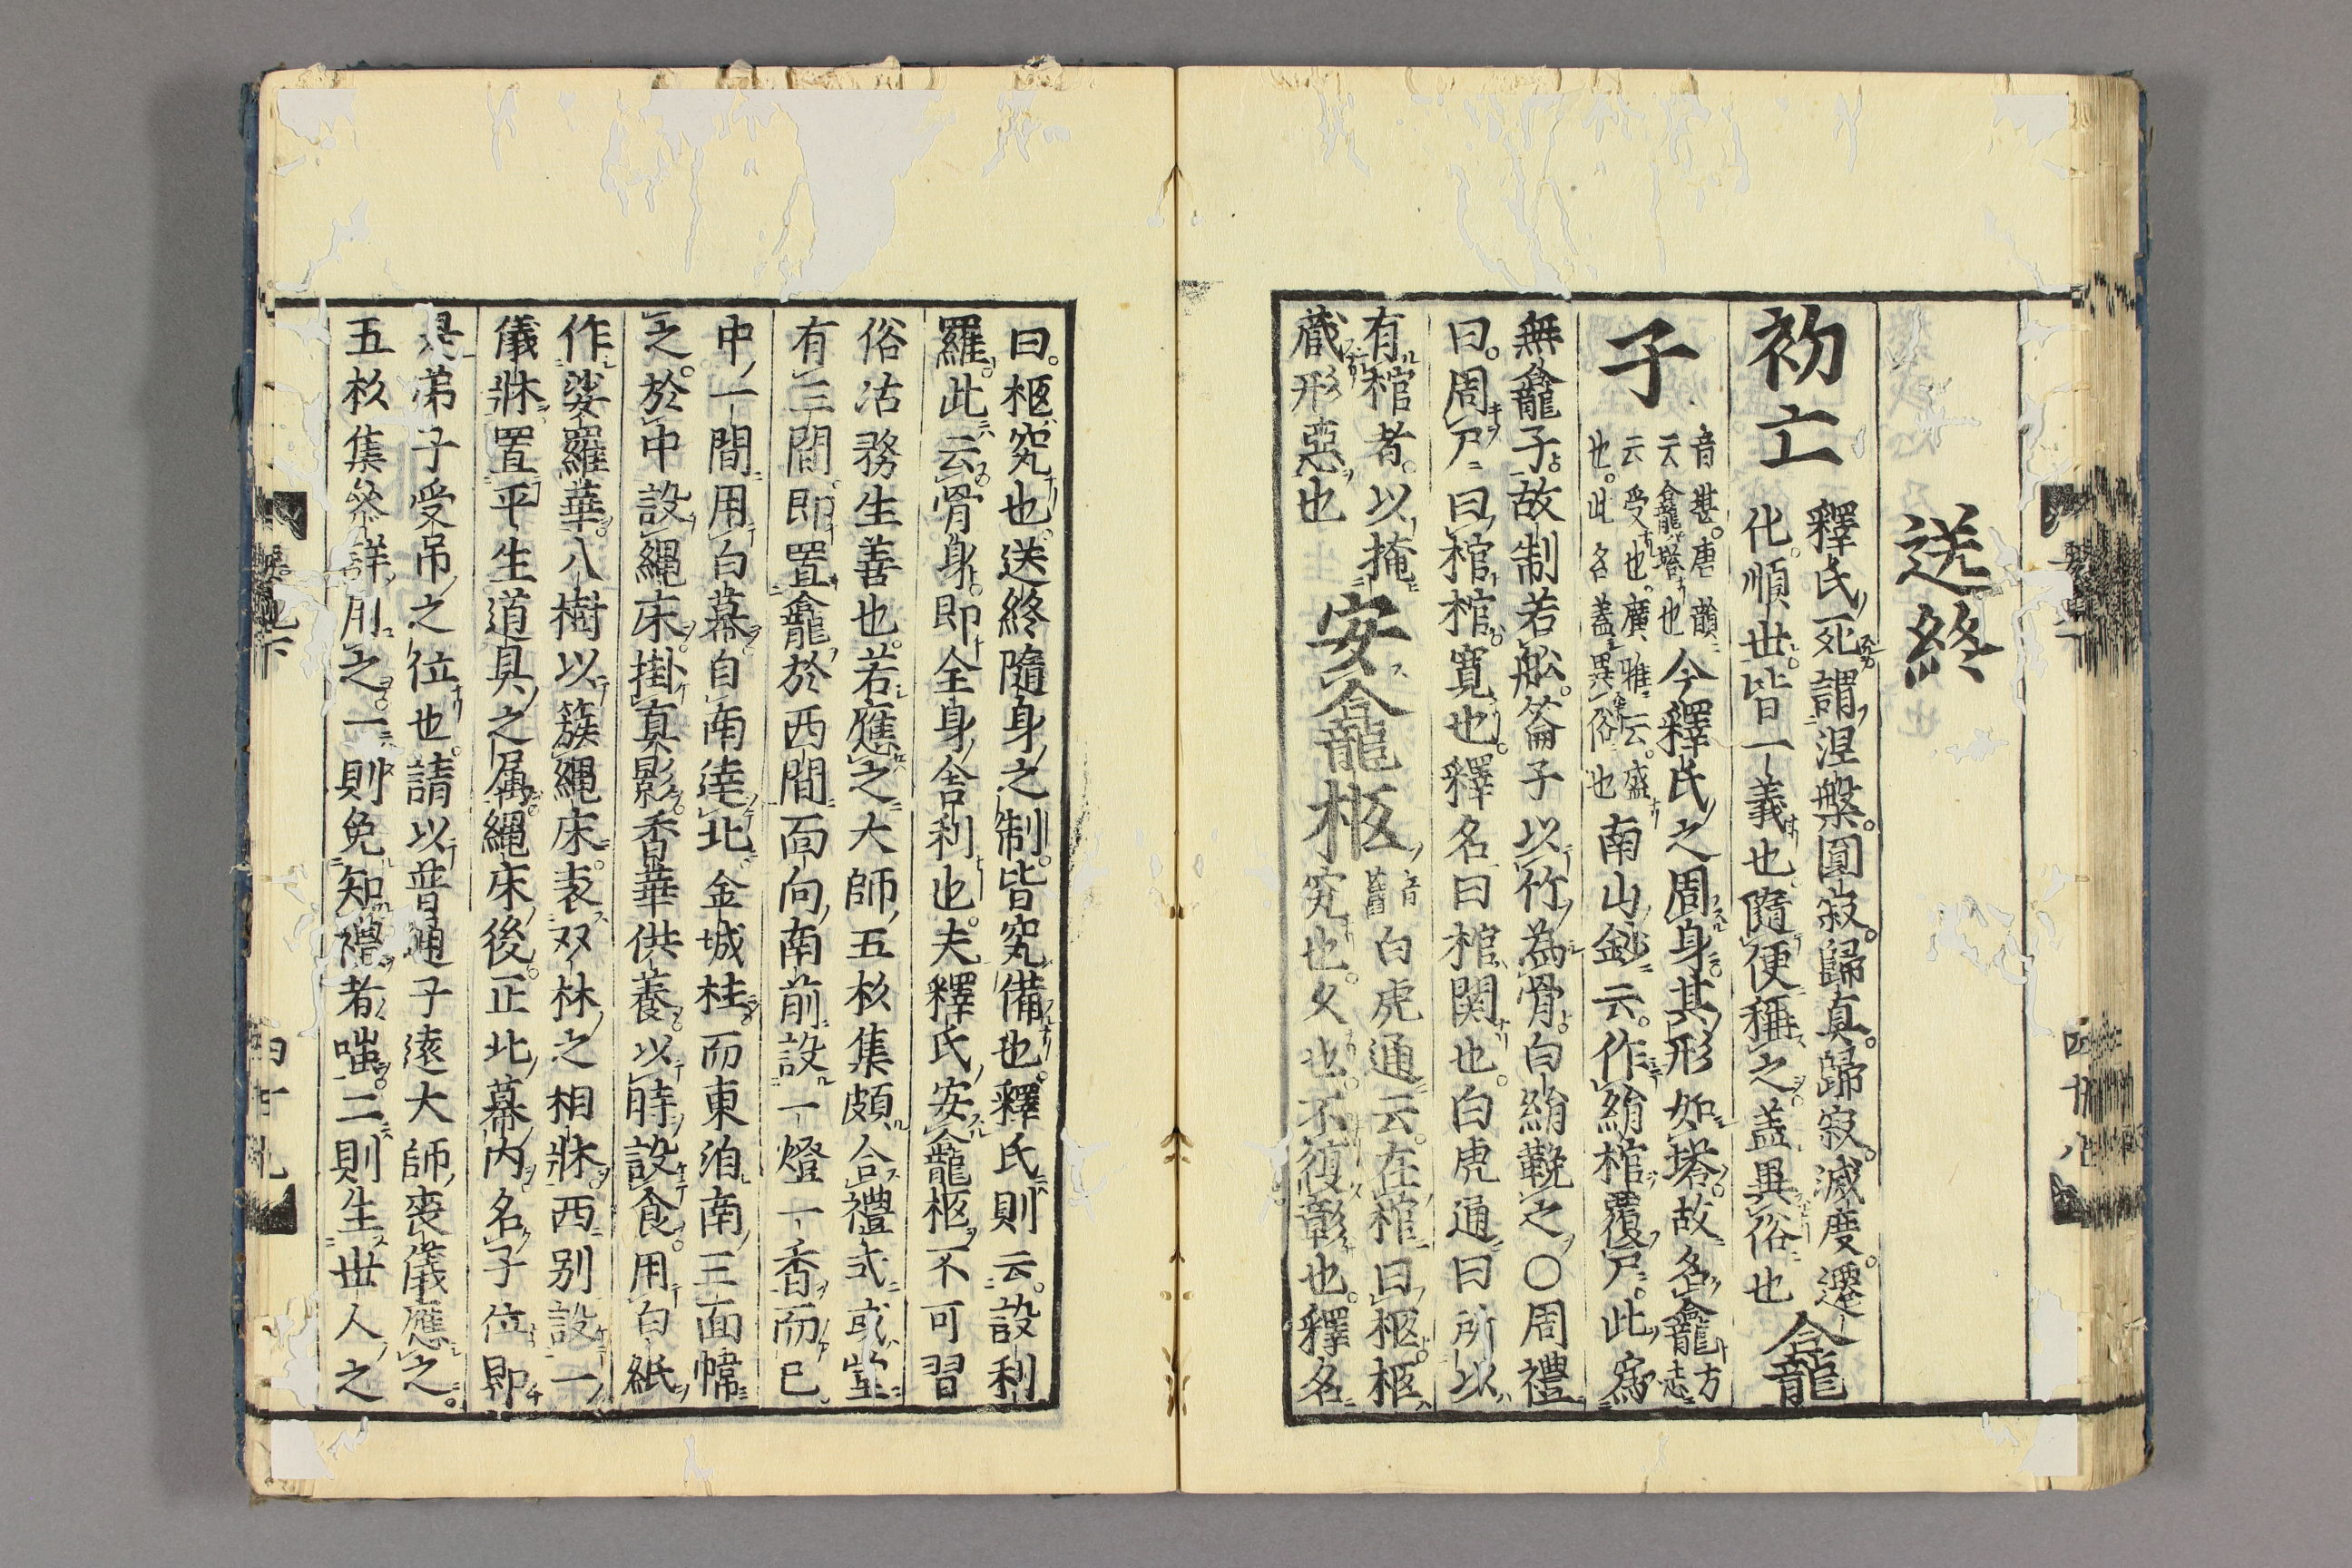 送終
初亡
釋氏死謂涅槃圓寂歸真歸寂滅度遷
化順世皆一義也隨便稱之盖異俗也
龕
子
音堪唐韻
云龕塔也
云受也廣雅云盛
也此名盖異俗也
今釋氏之周身其形如塔故名龕
方
志
南山鈔云作絹棺覆尸此爲
無龕子故制若舩篛子以竹為骨白絹鞔之〇周禮
曰周尸曰棺棺寬也釋名曰棺関也白虎通曰所以
有棺者以掩
藏形惡也
安龕柩
音
舊
白虎通云在棺曰柩柩
究也久也不復彰也釋名
曰柩究也送終隨身之制皆究備也釋氏則云設利
羅此云骨身即全身舍利也夫釋氏安龕柩不可習
俗沽務生善也若應之大師五杉集頗合禮式或堂
有三間即置龕於西間面向南前設一燈一香而已
中一間用白幕自南達北金城柱而東泊南三面幃
之於中設繩床掛真影香華供養以時設食用白紙
作娑羅華八樹以簇繩床表双林之相牀西别設一
儀牀置平生道具之属繩床後正北幕内名子位即
是弟子受吊之位也請以普通子遠大師喪儀應之
五杉集叅詳用之一則免知禮者嗤二則生世人之